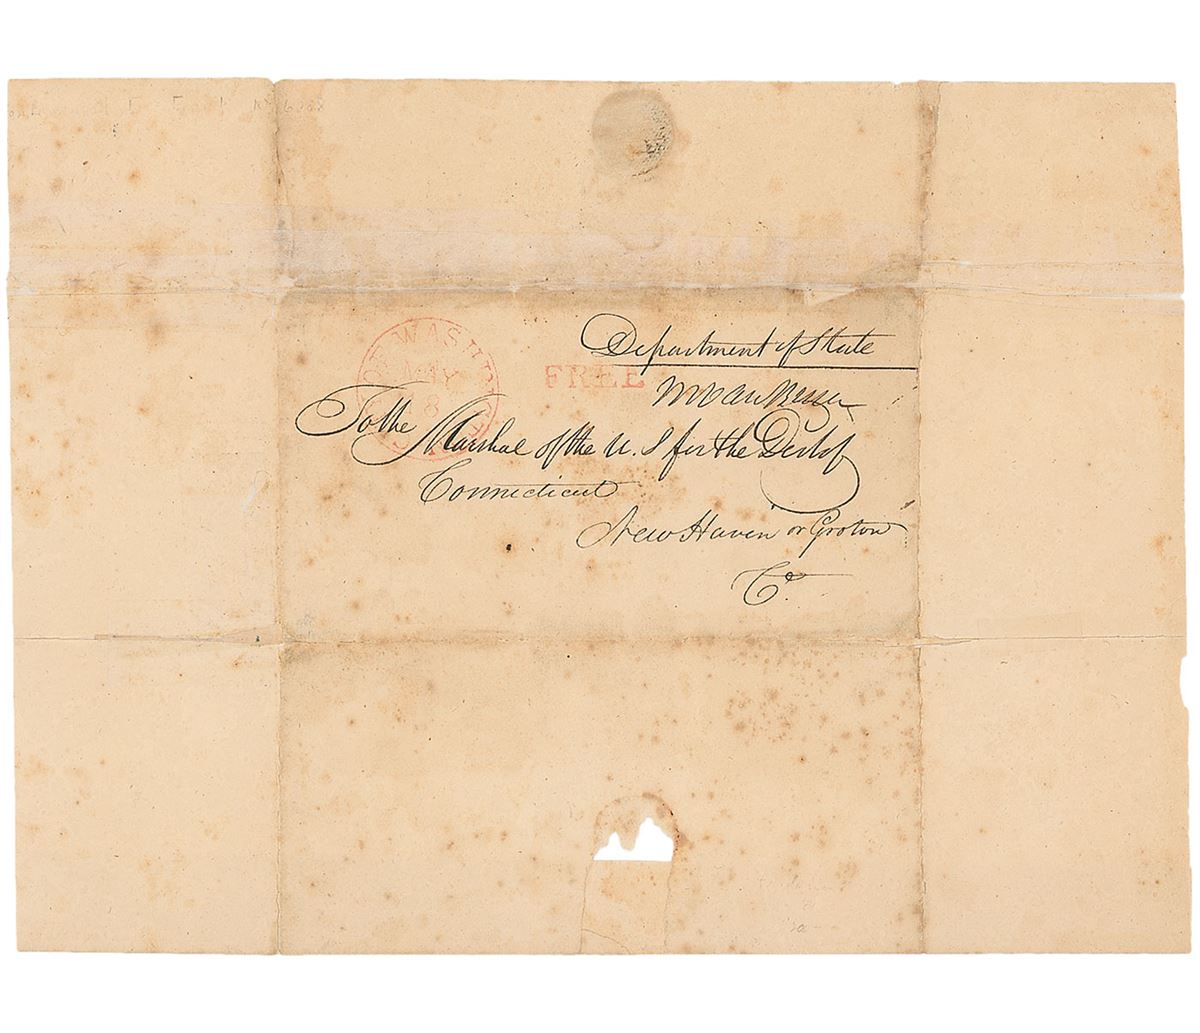 Department of State
CITY OF WASHINGTON
MAY
8
FREE
M Van Buren
To the Marshal of the U. S for the Dist of
Connecticut
New Haven or Groton
Ct.